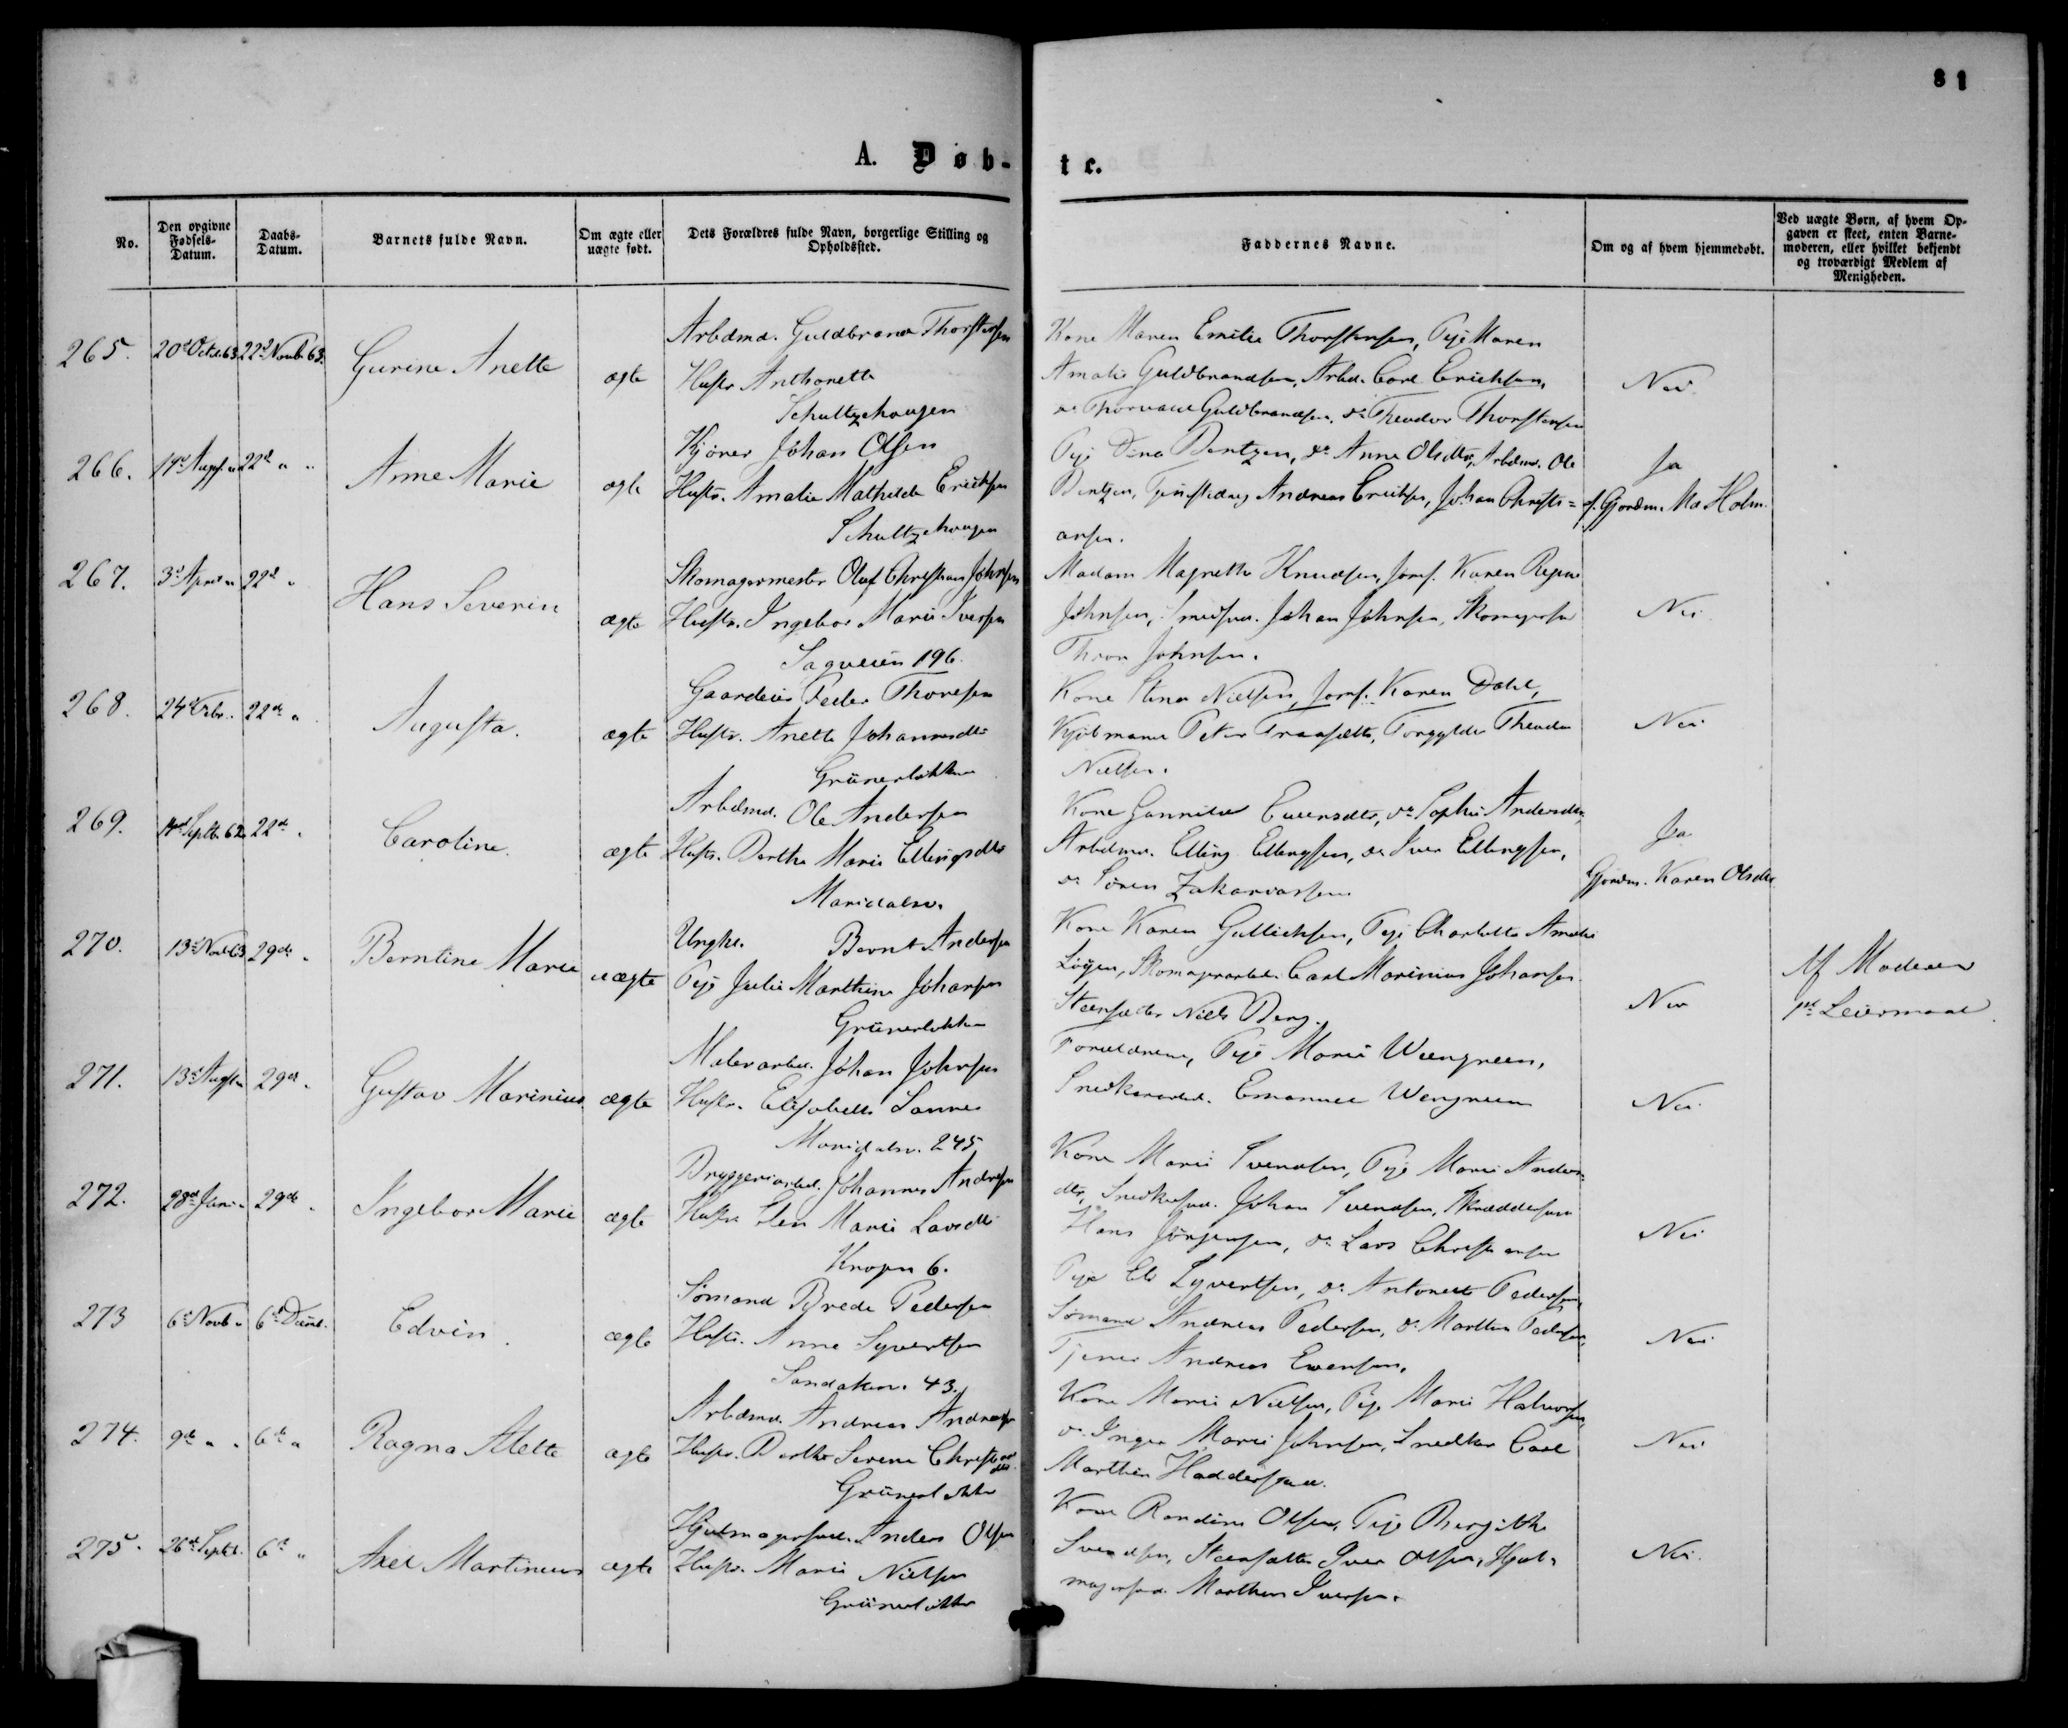 81
A. Døb-
te.
No.
Den opgivne Fødsels-Datum.
Daabs-Datum.
Barnets fulde Navn.
Om ægte eller uægte født.
Dets Forældres fulde Navn, borgerlige Stilling og Opholdssted.
Faddernes Navne.
Om og af hvem hjemmedøbt.
Ved uægte Børn, af hvem Op-
gaven er skeet, enten Barne-
moderen, eller hvilket bekjendt
og troværdigt Medlem af
Menigheden.
265. 20d Octr 63 22d Novb 63. Gurine Anette ægte
Arbdmd. Guldbrand Thorstensen
Hustr. Anthonette
Schultzehougen
Kone Maren Emilie Thorstensen, Pige Maren
Amalie Guldbrandsen, Arbd. Carl Ericksen,
do Thorvald Guldbrandsen, do Theodor Thorstensen
Nei
266. 19d Augst " 22d " " Anne Marie ægte
Kjører Johan Olsen
Hustr. Amalie Mathilde Ericksen
Schultzehougen
Pige Dina Bentzen, do Anne Olsdtr, Arbdmd. Ole
Bentzen, Andreas Ericksen, Johan Christi=
ansen.
Ja
af Gjordm. Mad Holm.
267. 3d April " 22d " Hans Severin ægte
Skomagermester Oluf Christian Johnsen
Hustr. Ingebor Marie Iversen
Sagveien 196.
Madam Magrethe Knudsen, Jomf. Karen
Johnsen, Smedsvd. Johan Johnsen, Skomagersv
Thron Johnsen.
Nei
268. 24d Febr. 22de " Augusta. ægte
Gaardeier Peder Thoresen
Hustr. Anette Johannesdtr
Grünerløkken
Kone Stina Nielsen, Jomf. Karen Dahl,
Kjøbmand Peter Traasæth, Forgylder Theodor
Nielsen.
Nei
269. Septbr 62 22de " Caroline. ægte
Arbdmd. Ole Andersen
Hustr. Berthe Marie Ellingsdtr
Maridalsv.
Kone Gunnild Evensdtr, do Sophie Andersdtr,
Arbdmd. Elling Ellingsen, do Iver Ellingsen,
do Søren Zakariassen
Ja
Gjordm. Karen Olsdtr
270. 13d Novb 63 29de " Berntine Marie uægte
Ungkr. Bernt Andersen
Pige Julie Marthine Johansen
Grünerløkken
Kone Karen Gullichsen, Pige Charlotte Amalie
Skomagerarbd. Carl Marinius Johansen
Steenhugger Niels Berg.
Nei
Af Moderen
1st Leiermaal
271. 13d Augst " 29de " Gustav Marinius ægte
Malerarbd. Johan Johnsen
Hustr. Elisabeth Sannes
Maridalsv. 245
Forældrene, Pige Marie Weengreen,
Snedkerarbd. Emanuel Wengreen
Nei
272. 28d Juni " 29de " Ingebor Marie ægte
Bryggeriarbd. Johannes Andresen
Hustr. Elen Marie Larsdtr
Krogen 6.
Kone Marie Svendsen, Pige Marie Anders-
dtr, Snedkersvd. Johan Svendsen, Skræddersvd
Hans Jørgensen, do Lars Christiansen
Nei
273 6d Novb " 6d Decmb. Edvin. ægte
Sømand Brede Pedersen
Hustr. Anne Syvertsen
Sandakerv. 43.
Pige Eli Syvertsen, do Antonette Pedersen,
Sømand Andreas Pedersen, do Marthin Pedersen,
Tjener Andreas Evensen.
Nei
274. 9de " " 6te " Ragna Alette ægte
Arbdmd. Andreas Andresen
Hustr. Berthe Serene Christiansdtr.
Grünerløkken
Kone Marie Nielsen, Pige Marie Halvorsen,
do Inger Marie Johnsen, Snedker Carl
Marthin Haddersen.
Nei
275. 26de Septbr. 6te " Axel Martinius ægte
Hjulmagersvd. Anders Olsen
Hustr. Marie Nielsen
Grünerløkken
Kone Randine Olsen, Pige Bergitthe
Svendsen, Iver Olsen, Hjul-
magersvd. Marthin Iversen.
Nei.